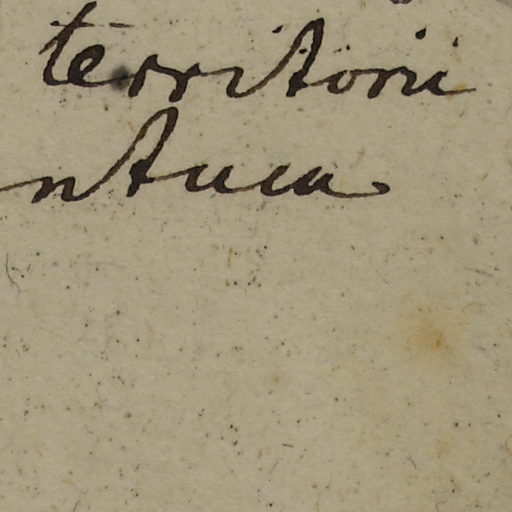 territorii
ntuca